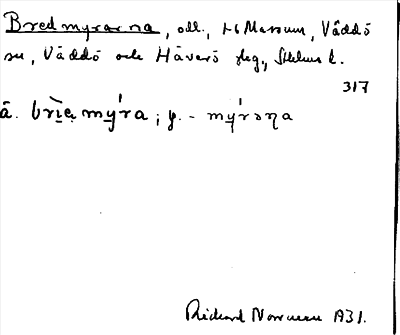 Bredmyrarna, odl., t. Massum, Väddö
sn, Väddö och Häverö skg., Sthlms l.
317
â. brìe̯mýra; y. - mýrəɳa
Rickard Norrman 1931.